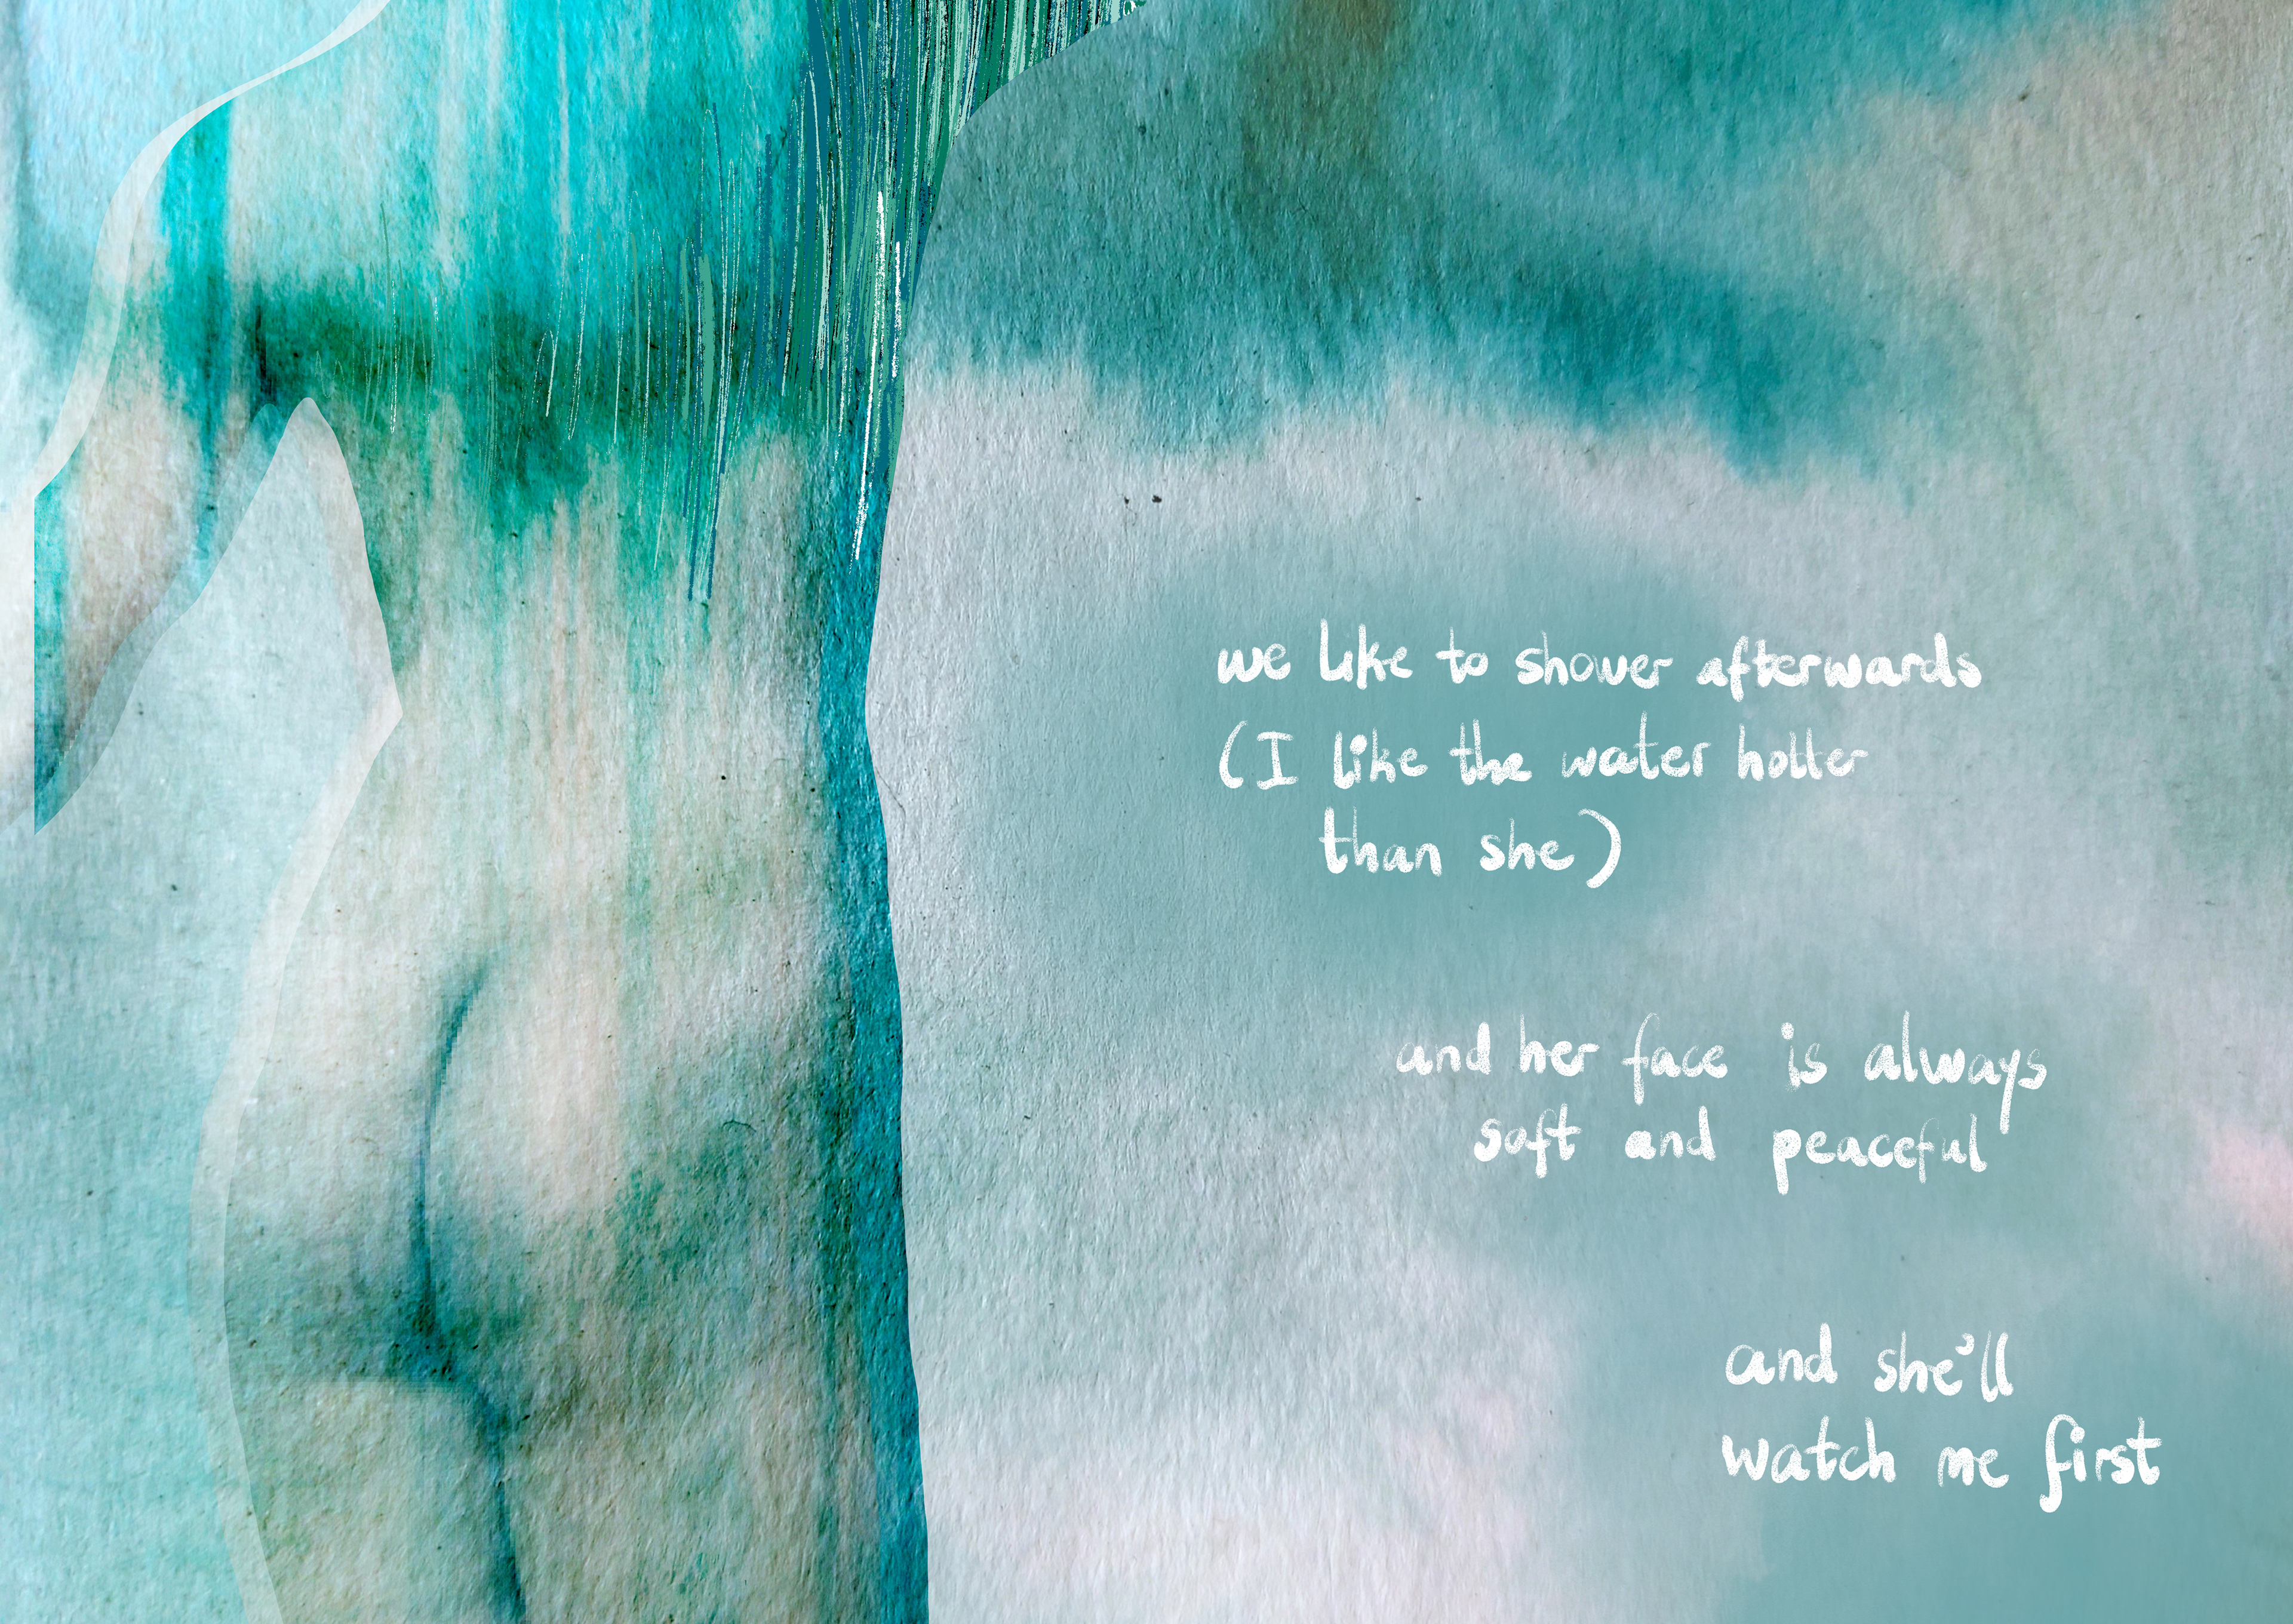 we like to shower afterwards
(I like the water hotter
than she)
and her face is always
soft and peaceful
and she'll
watch me first